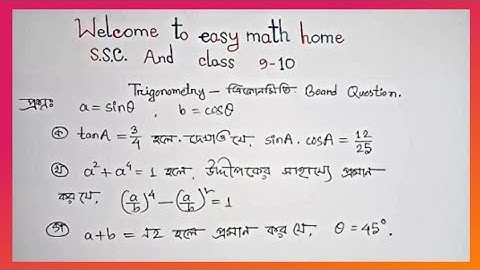 Welcome to easy math home
S.S.C. And class 9-10
Trigonometry - ত্রিকোনমিতি Board Question.
প্রশ্নঃ a = sinθ , b = cosθ
ⓚ tanA = 3/4 হলে. দেখাও যে, sinA. cosA = 12/25
ⓠ a² + a⁴ = 1 হলে, উদ্দীপকের সাহায্যে প্রমান
কর যে, (a/b)⁴ - (a/b)² = 1
গ a+b = √2 হলে প্রমান কর যে, θ = 45°.